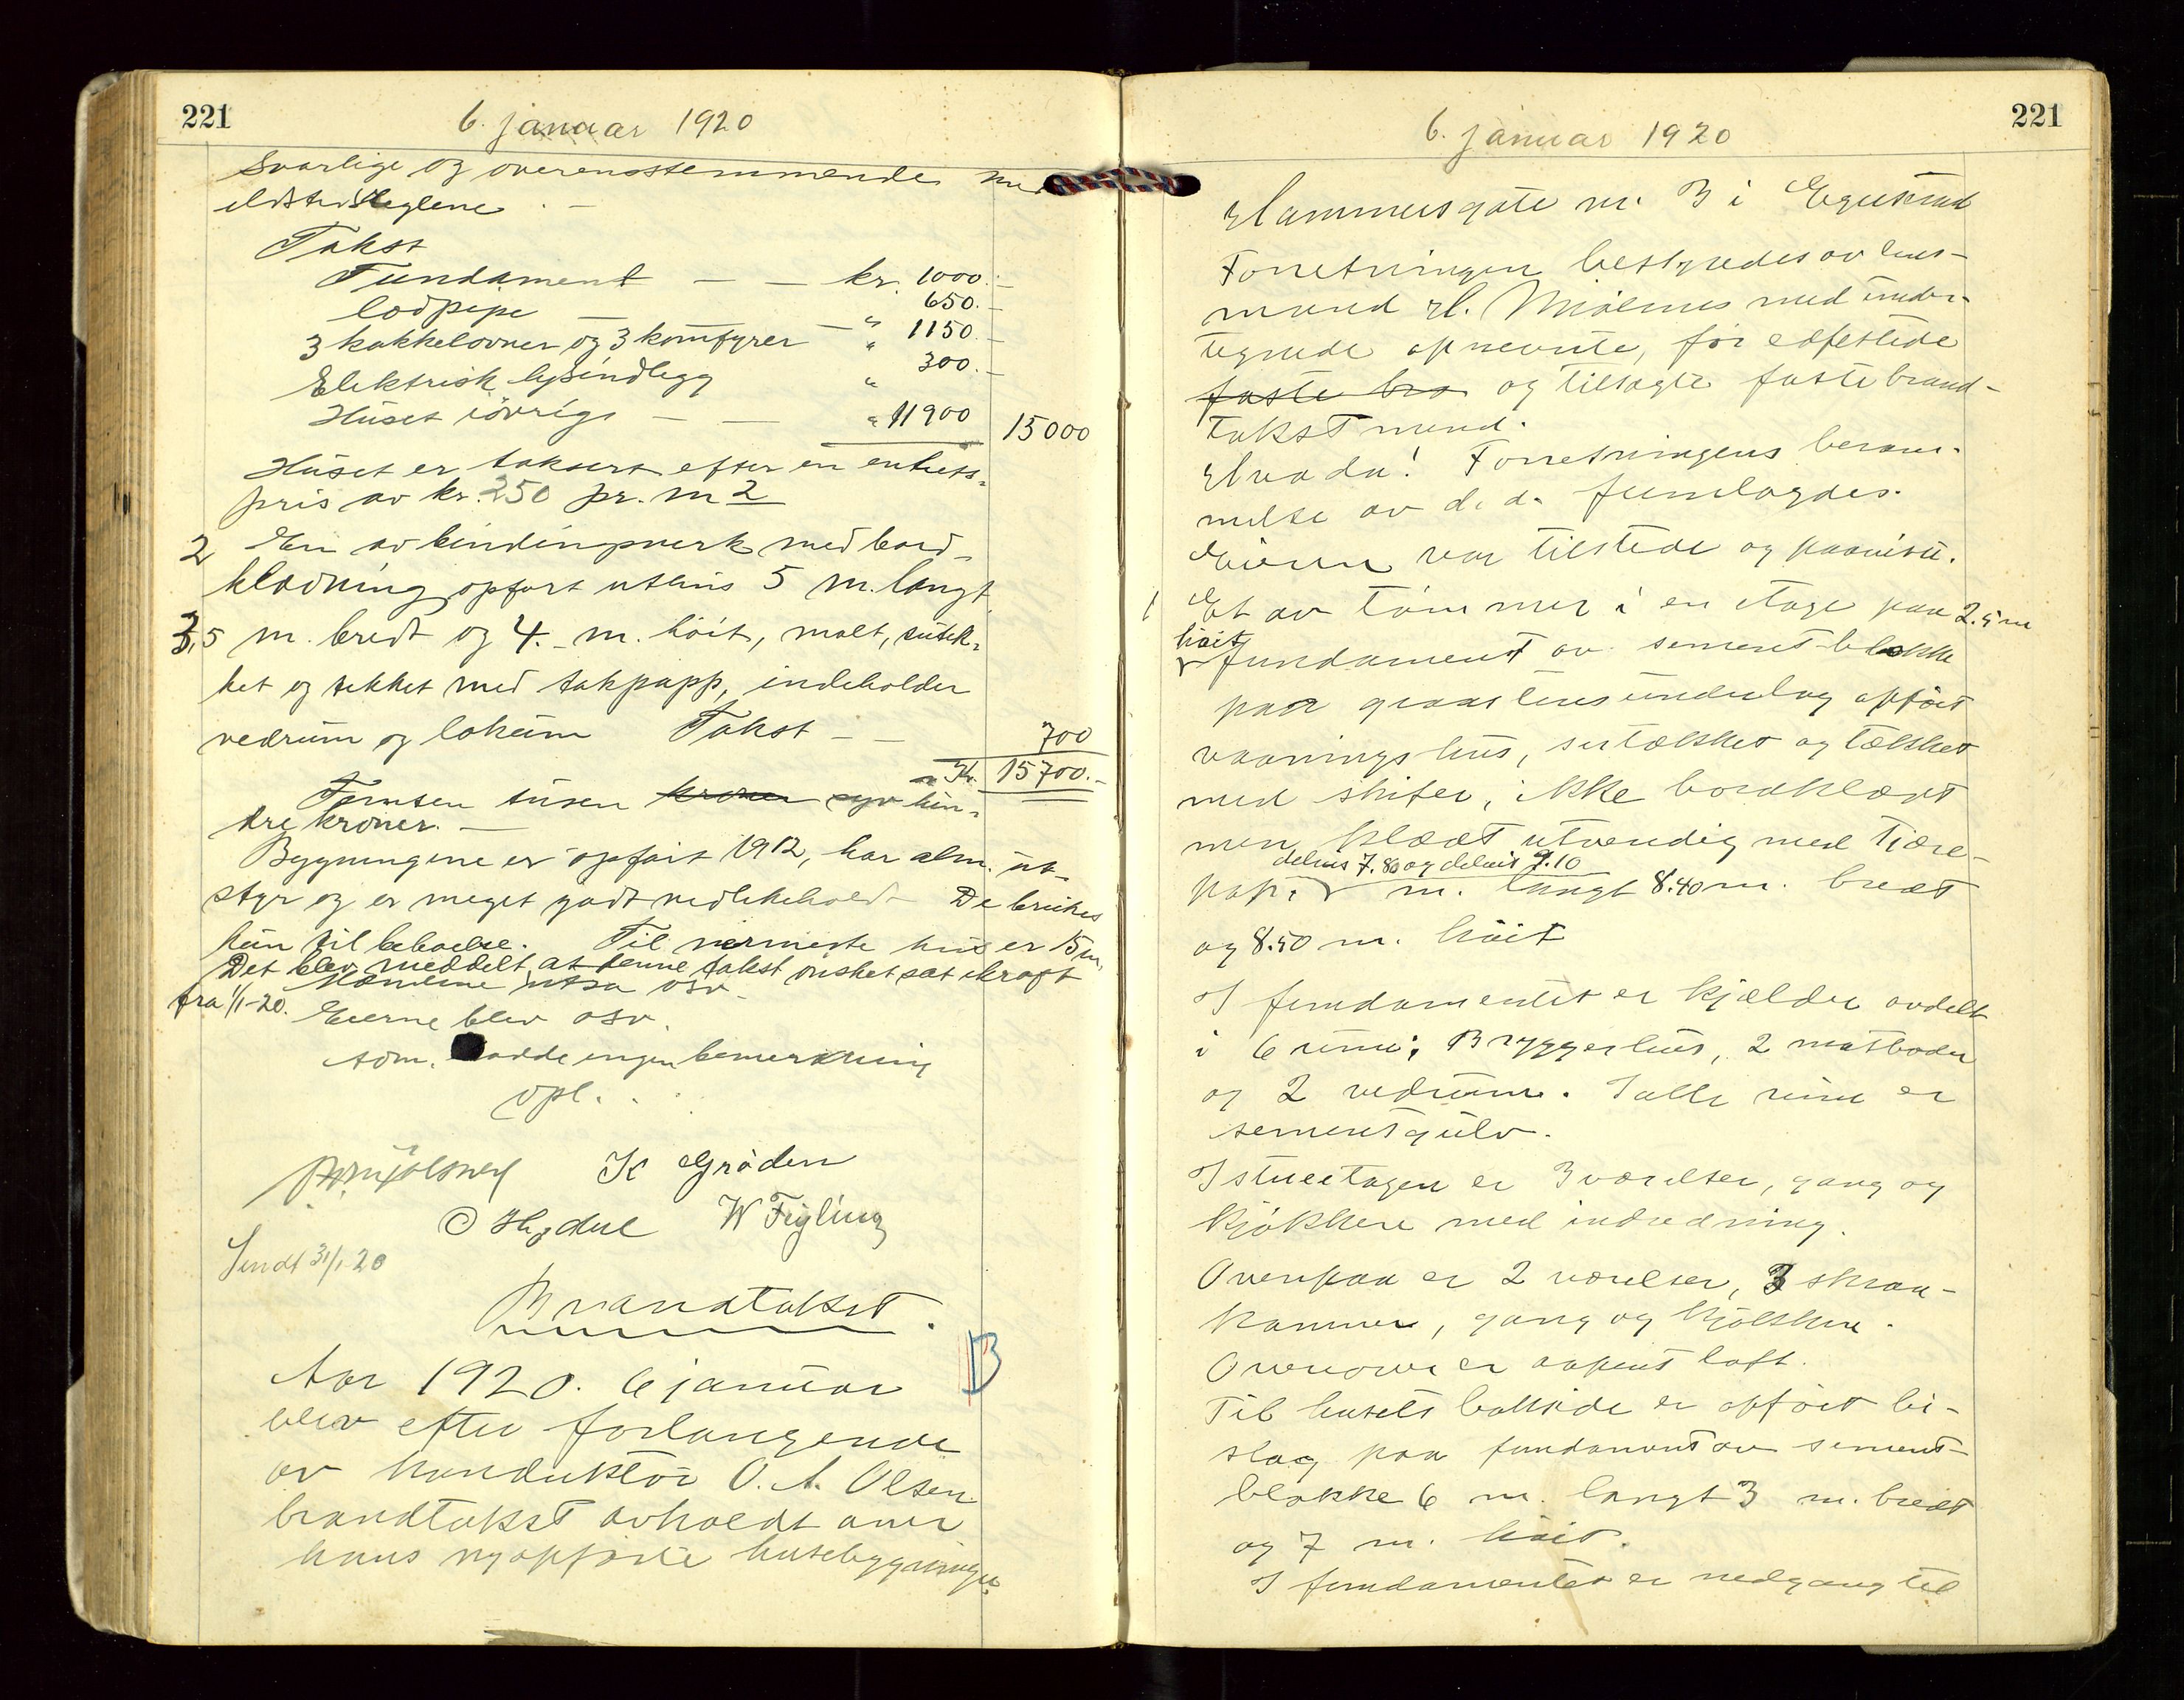 221
6. januar 1920
svarlige og overensstemmende med
ildstedsreglene
Takst
Fundament — — kr. 1000.-
lodpipe — " 650.-
3 kakkelovner og 3 komfyrer — " 1150.-
Elektrisk lysindlegg " 300.-
Huset iøvrigt — — " 11900 15000
Huset er taksert efter en enhets-
pris av kr. 250 pr. m2
2 En av bindingsverk med bord-
klædning opført uthus 5 m. langt
3,5 m. bredt og 4.- m. høit, malt, sutak-
ket og tekket med takpapp, indeholder
vedrum og lokum Takst — — 700
Kr. 15700.-
Femten tusen kroner syv hun-
dre kroner. —
Bygningene er opført 1912, har alm. ut-
styr og er meget godt vedlikeholdt. De brukes
kun til beboelse. Til nærmeste hus er 15 m.
Det blev meddelt at denne takst ønsket sat ikraft
fra 1/1-20.
Mændene utsa osv.
Eierne blev osv.
som hadde ingen bemerkning
opl.
K Grøden
O Hegdal W Feyling
Sendt 31/1 20
Brandtakst.
B
Aar 1920. 6 januar
blev efter forlangende
av konduktør O. A. Olsen
brandtakst avholdt over
hans nyopførte husebygninger
221
6. januar 1920
Hammersgate nr. 3 i Egersund
Forretningen bestyredes av lens-
mand H. Mjølsnes med under-
tegnede opnevnte, før edfestede
faste bra og tilsagte faste brand-
takstmænd.
Hvada! Forretningens beram-
melse av d. d. fremlagdes.
Eieren var tilstede og paaviste.
1 Et av tømmer i en etage paa 2.5 m
høit
fundament av sement-blokke
paa graastens underlag opført
vaaningshus, sutækket og tækket
med skifer, ikke bordklædt
men klædt utvendig med tjære-
delvis 7.80 og delvis 9.10
papir m. langt 8.40 m. bredt
og 8.50 m. høit
I fundamentet er kjælder avdelt
i 6 rum; Bryggerhus, 2 matboder
og 2 vedrum. I alle rum er
sementgulv.
I stueetagen er 3 værelser, gang og
kjøkken med indredning.
Ovenpaa er 2 værelser, 3 skraa-
kammer, gang og kjøkken.
Ovenover er aapent loft.
Til husets bakside er opført bi-
slag paa fundament av sement-
blokke 6 m. langt 3 m. bredt
og 7 m. høit.
I fundamentet er nedgang til